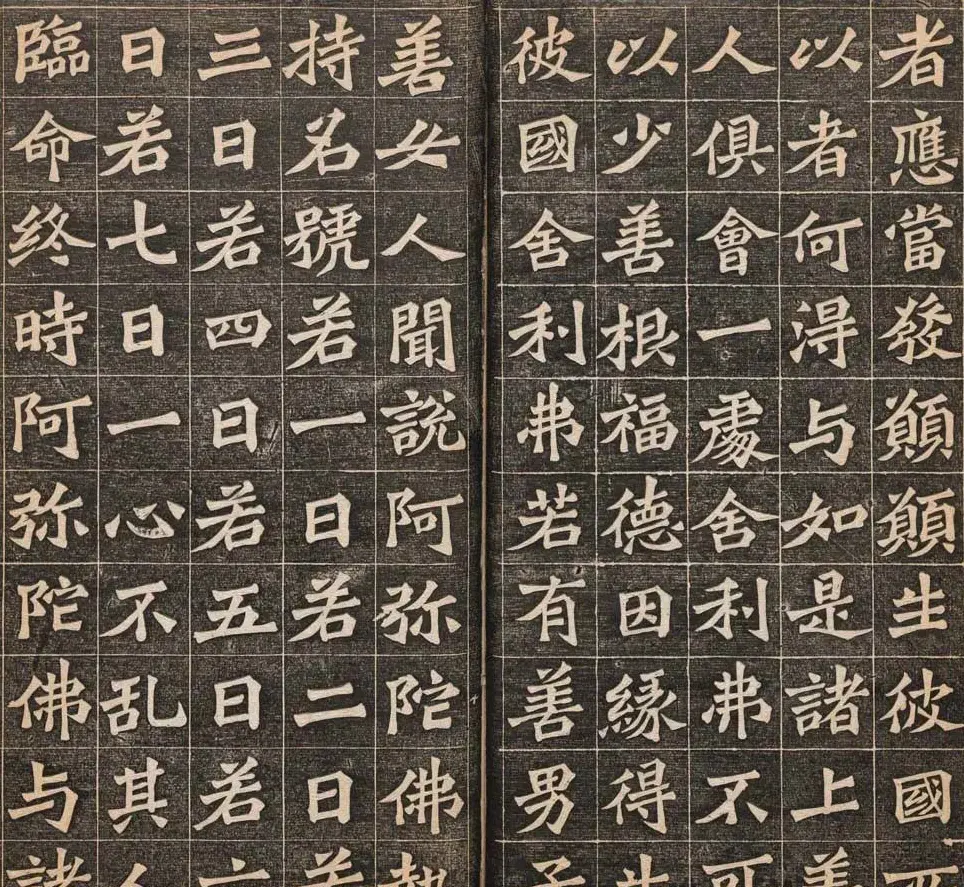 者應當發願願生彼國所
以者何淂与如是諸上善
人俱會一處舍利弗不可
以少善根福德因緣得生
彼國舍利弗若有善男子
善女人聞說阿弥陀佛執
持名號若一日若二日若
三日若四日若五日若六
日若七日一心不乱其人
臨命終時阿弥陀佛与諸